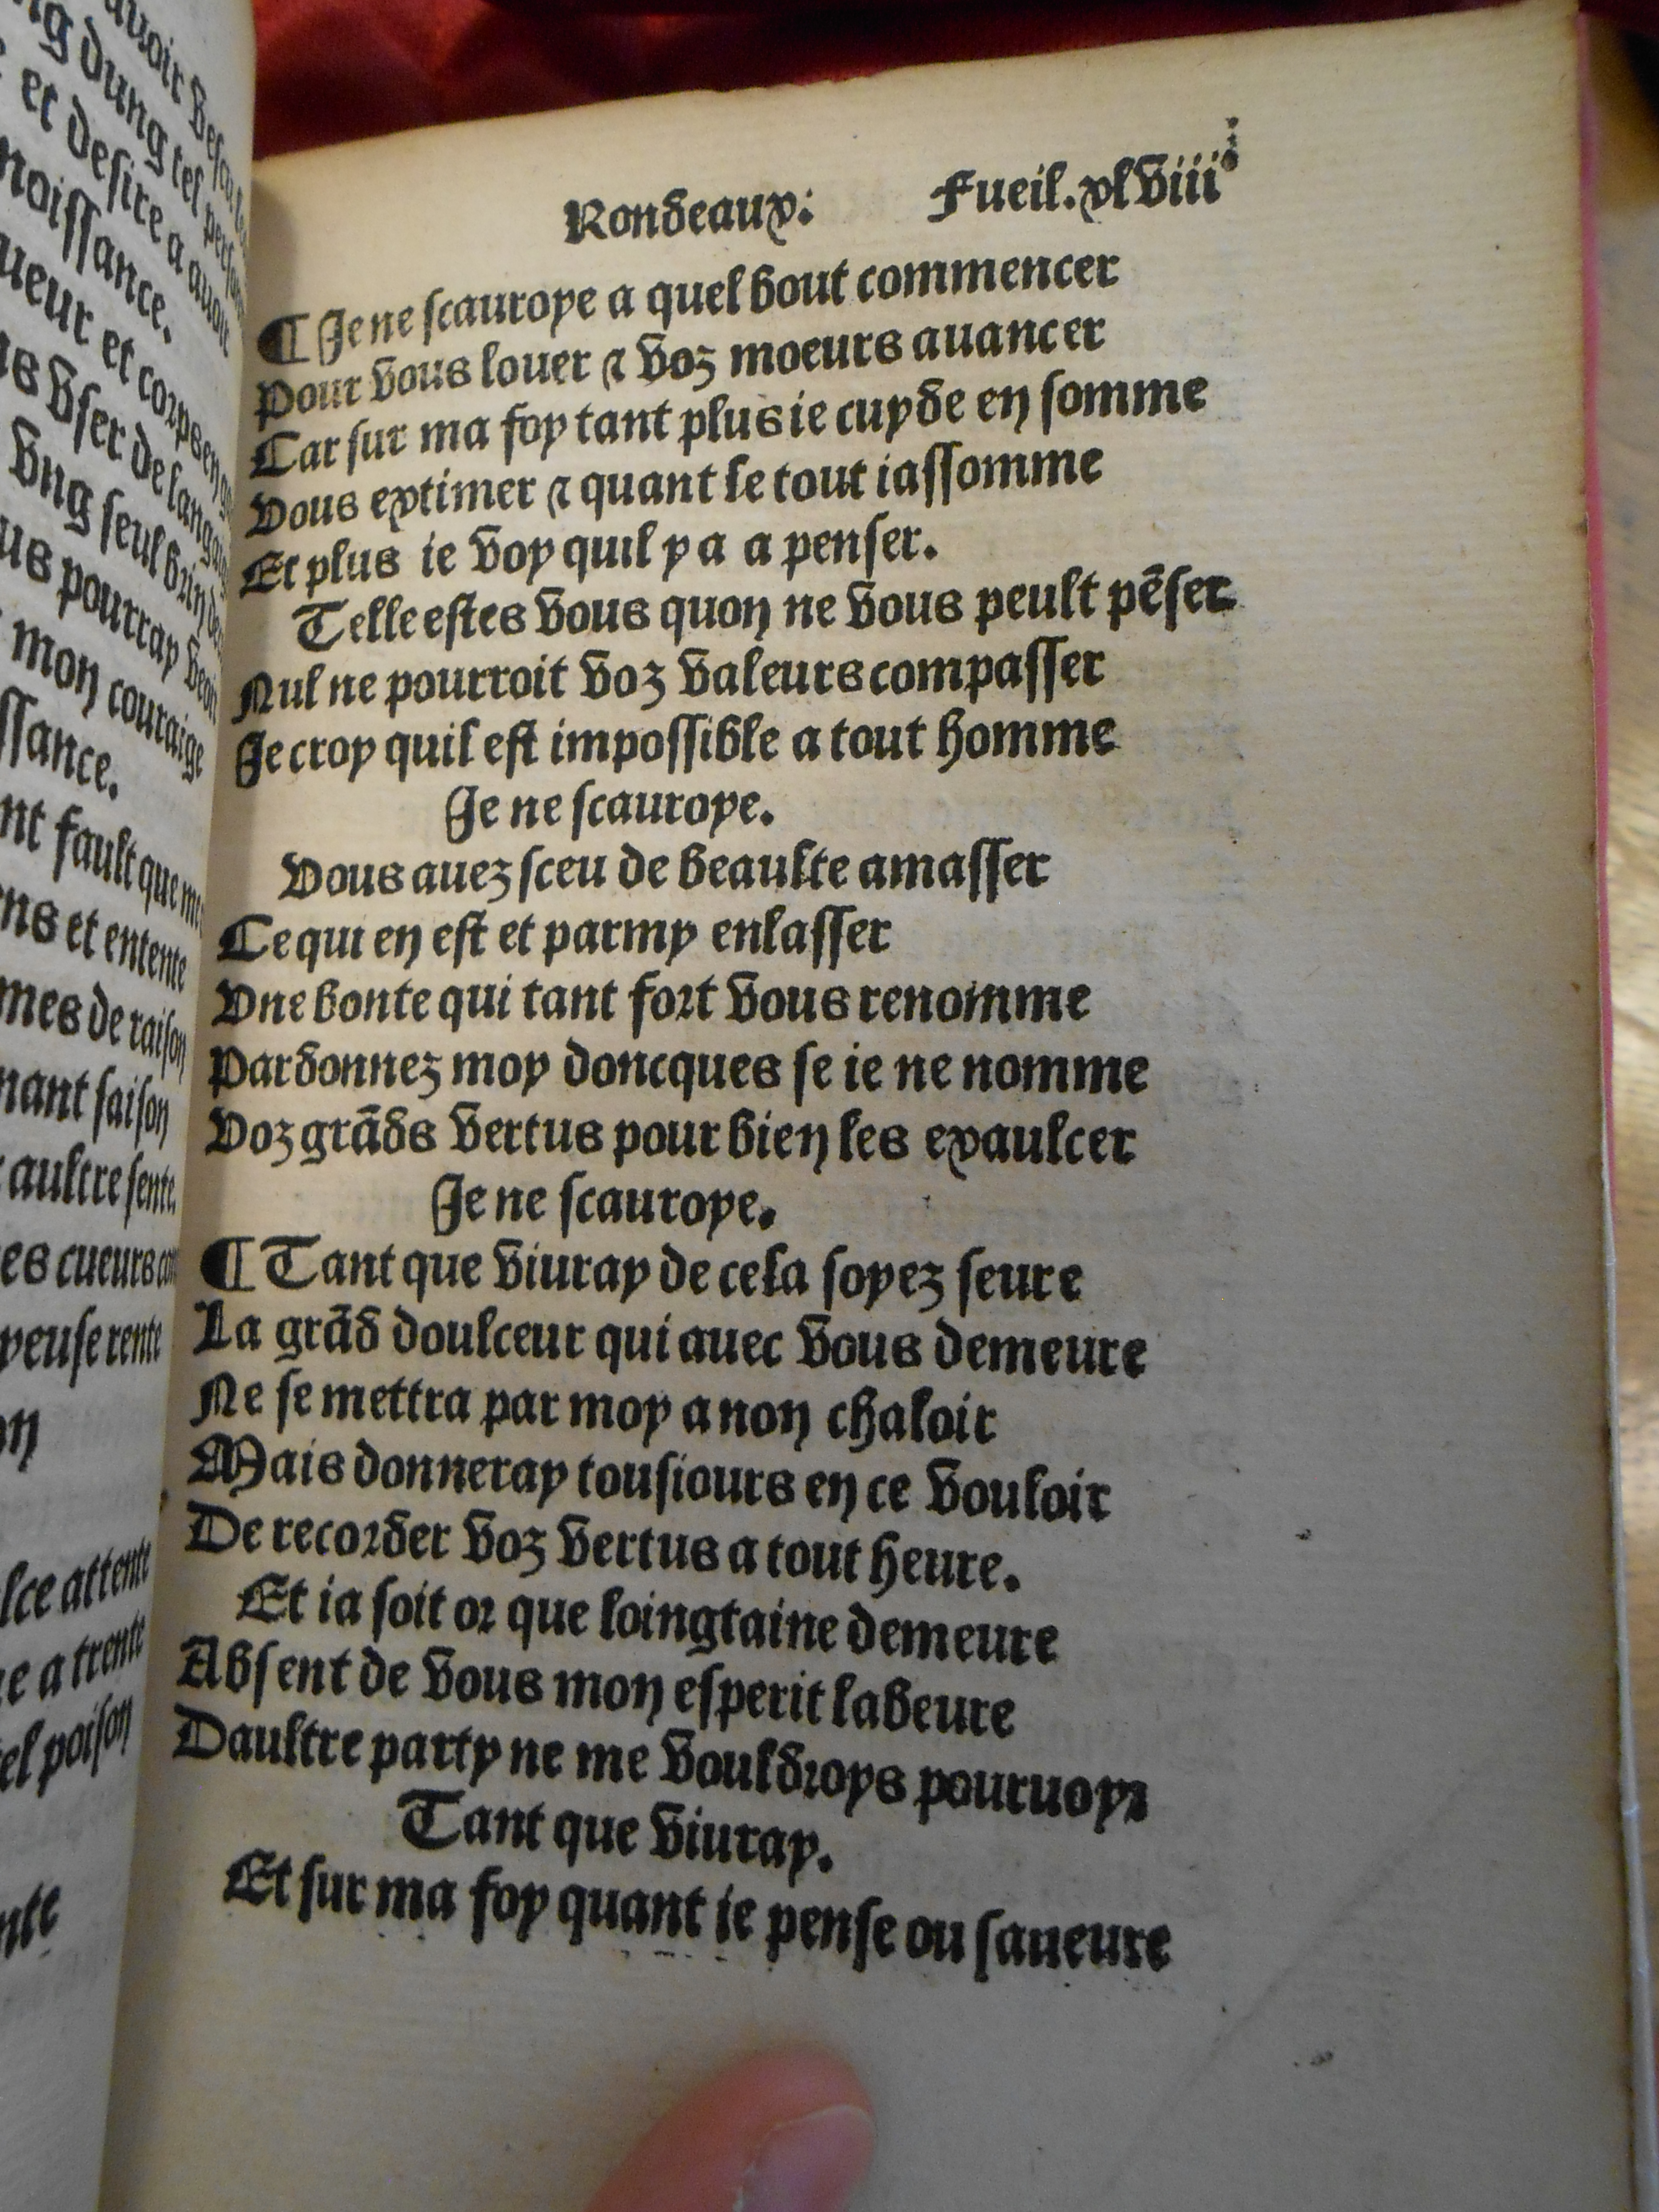 Rondeaux: Fueil.xlviii
¶ Je ne scauroye a quel bout commencer
Pour vous louer ⁊ voz moeurs auancer
Car sur ma foy tant plus ie cuyde en somme
Vous extimer ⁊ quant le tout iassomme
Et plus ie voy quil y a a penser.
Telle estes vous quon ne vous peult pẽser
Nul ne pourroit voz valeurs compasser
Je croy quil est impossible a tout homme
Je ne scauroye.
Vous auez sceu de beaulte amasser
Ce qui en est et parmy enlasser
Vne bonte qui tant fort vous renomme
Pardonnez moy doncques se ie ne nomme
Voz grãds vertus pour bien les exaulcer
Je ne scauroye.
¶ Tant que viuray de cela soyez seure
La grãd doulceur qui auec vous demeure
Ne se mettra par moy a non chaloir
Mais donneray tousiours en ce vouloir
De recorder voz vertus a tout heure.
Et ia soit or que loingtaine demeure
Absent de vous mon esperit labeure
Daultre party ne me vouldroys pouruoyr
Tant que viuray.
Et sur ma foy quant ie pense ou saueure
ng dung tel
et desire a auoir
noissance.
ueur et corps en
vser de
vng seul brin de
us pourray
mon couraige
ssance.
nt fault que
ns et entente
mes de raison
nant saison
aultre sente.
es cueurs
peuse rente
on
lce attente
e a trente
el poison
nte